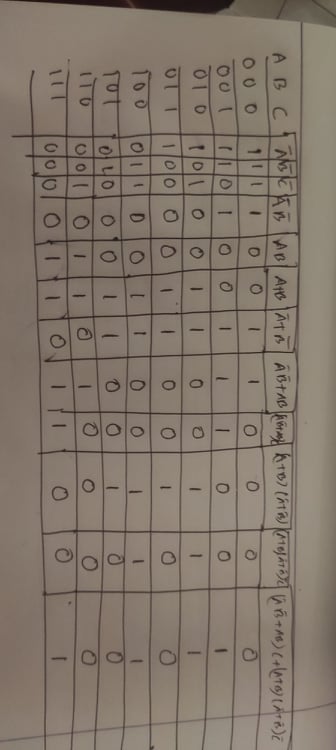 A B C Ā B̄ C̄ ĀB̄ AB A+B Ā+B̄ ĀB̄+AB (A+B)(Ā+B̄) (A+B)(Ā+B̄)C̄ (ĀB̄+AB)C+(A+B)(Ā+B̄)C̄
0 0 0 1 1 1 1 0 0 1 1 0 0 0 0
0 0 1 1 1 0 1 0 0 1 1 1 0 0 1
0 1 0 1 0 1 0 0 1 1 0 0 1 1 1
0 1 1 1 0 0 0 0 1 1 0 0 1 0 0
1 0 0 0 1 1 0 0 1 1 0 0 1 1 1
1 0 1 0 1 0 0 0 1 1 0 0 1 0 0
1 1 0 0 0 1 0 1 1 0 1 0 0 0 0
1 1 1 0 0 0 0 1 1 0 1 1 0 0 1